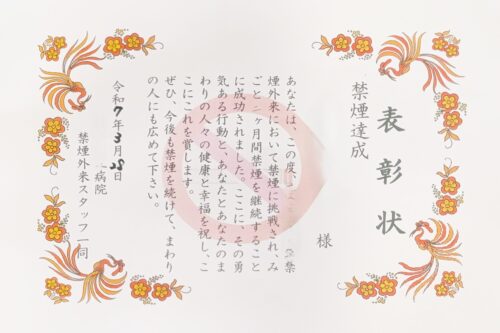 表彰状
禁煙達成
様
あなたは、この度、禁
煙外来において禁煙に挑戦され、み
ごと三ヶ月間禁煙を継続すること
に成功されました。ここに、その勇
気ある行動と、あなたとあなたのま
わりの人々の健康と幸福を祝し、こ
こにこれを賞します。
ぜひ、今後も禁煙を続けて、まわり
の人にも広めて下さい。
令和7年3月28日
病院
禁煙外来スタッフ一同